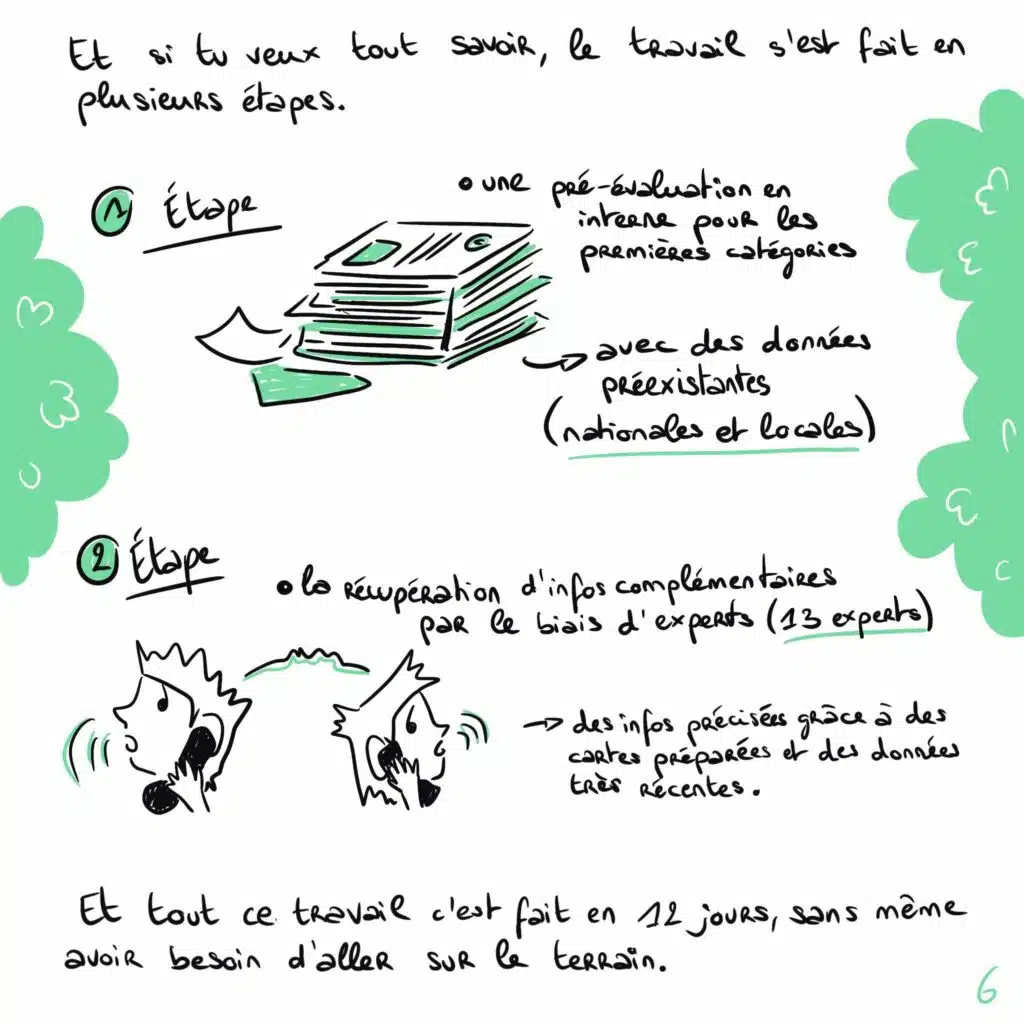 Et si tu veux tout savoir, le travail s'est fait en
plusieurs étapes.
1 Étape
• une pré-évaluation en
interne pour les
premières catégories
→ avec des données
préexistantes
(nationales et locales)
2 Étape
• la récupération d'infos complémentaires
par le biais d'experts (13 experts)
→ des infos précisées grâce à des
cartes préparées et des données
très récentes.
Et tout ce travail c'est fait en 12 jours, sans même
avoir besoin d'aller sur le terrain.
6